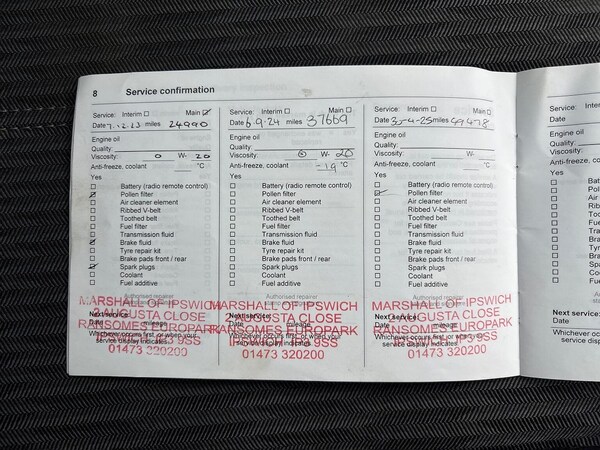 8 Service confirmation
Service: Interim ☐ Main ☑
Date 7.12.23 miles 24990
Engine oil
Quality:
Viscosity: 0 W- 20
Anti-freeze, coolant °C
Yes
☐ Battery (radio remote control)
☑ Pollen filter
☐ Air cleaner element
☐ Ribbed V-belt
☐ Toothed belt
☐ Fuel filter
☐ Transmission fluid
☑ Brake fluid
☐ Tyre repair kit
☐ Brake pads front / rear
☑ Spark plugs
☐ Coolant
☐ Fuel additive
Authorised repairer
MARSHALL OF IPSWICH
AUGUSTA CLOSE
RANSOMES EUROPARK
01473 320200
Next service:
Date mileage
Whichever occurs first or when your
service display indicates
Service: Interim ☐ Main ☐
Date 6.9.24 miles 37669
Engine oil
Quality:
Viscosity: 0 W- 20
Anti-freeze, coolant -19 °C
Yes
☐ Battery (radio remote control)
☐ Pollen filter
☐ Air cleaner element
☐ Ribbed V-belt
☐ Toothed belt
☐ Fuel filter
☐ Transmission fluid
☐ Brake fluid
☐ Tyre repair kit
☐ Brake pads front / rear
☐ Spark plugs
☐ Coolant
☐ Fuel additive
Authorised repairer
MARSHALL OF IPSWICH
AUGUSTA CLOSE
RANSOMES EUROPARK
IPSWICH IP3 9SS
01473 320200
Next service:
Date mileage
Whichever occurs first or when your
service display indicates
Service: Interim ☐ Main ☐
Date 30-4-25 miles 49478
Engine oil
Quality:
Viscosity: W-
Anti-freeze, coolant °C
Yes
☐ Battery (radio remote control)
☑ Pollen filter
☐ Air cleaner element
☐ Ribbed V-belt
☐ Toothed belt
☐ Fuel filter
☐ Transmission fluid
☐ Brake fluid
☐ Tyre repair kit
☐ Brake pads front / rear
☐ Spark plugs
☐ Coolant
☐ Fuel additive
Authorised repairer
MARSHALL OF IPSWICH
AUGUSTA CLOSE
RANSOMES EUROPARK
IPSWICH IP3 9SS
01473 320200
Next service:
Date mileage
Whichever occurs first or when your
service display indicates
Service:
Date
Engine oil
Quality:
Viscosity:
Anti-freeze
Yes
Next service:
Date
Whichever occ
service disp